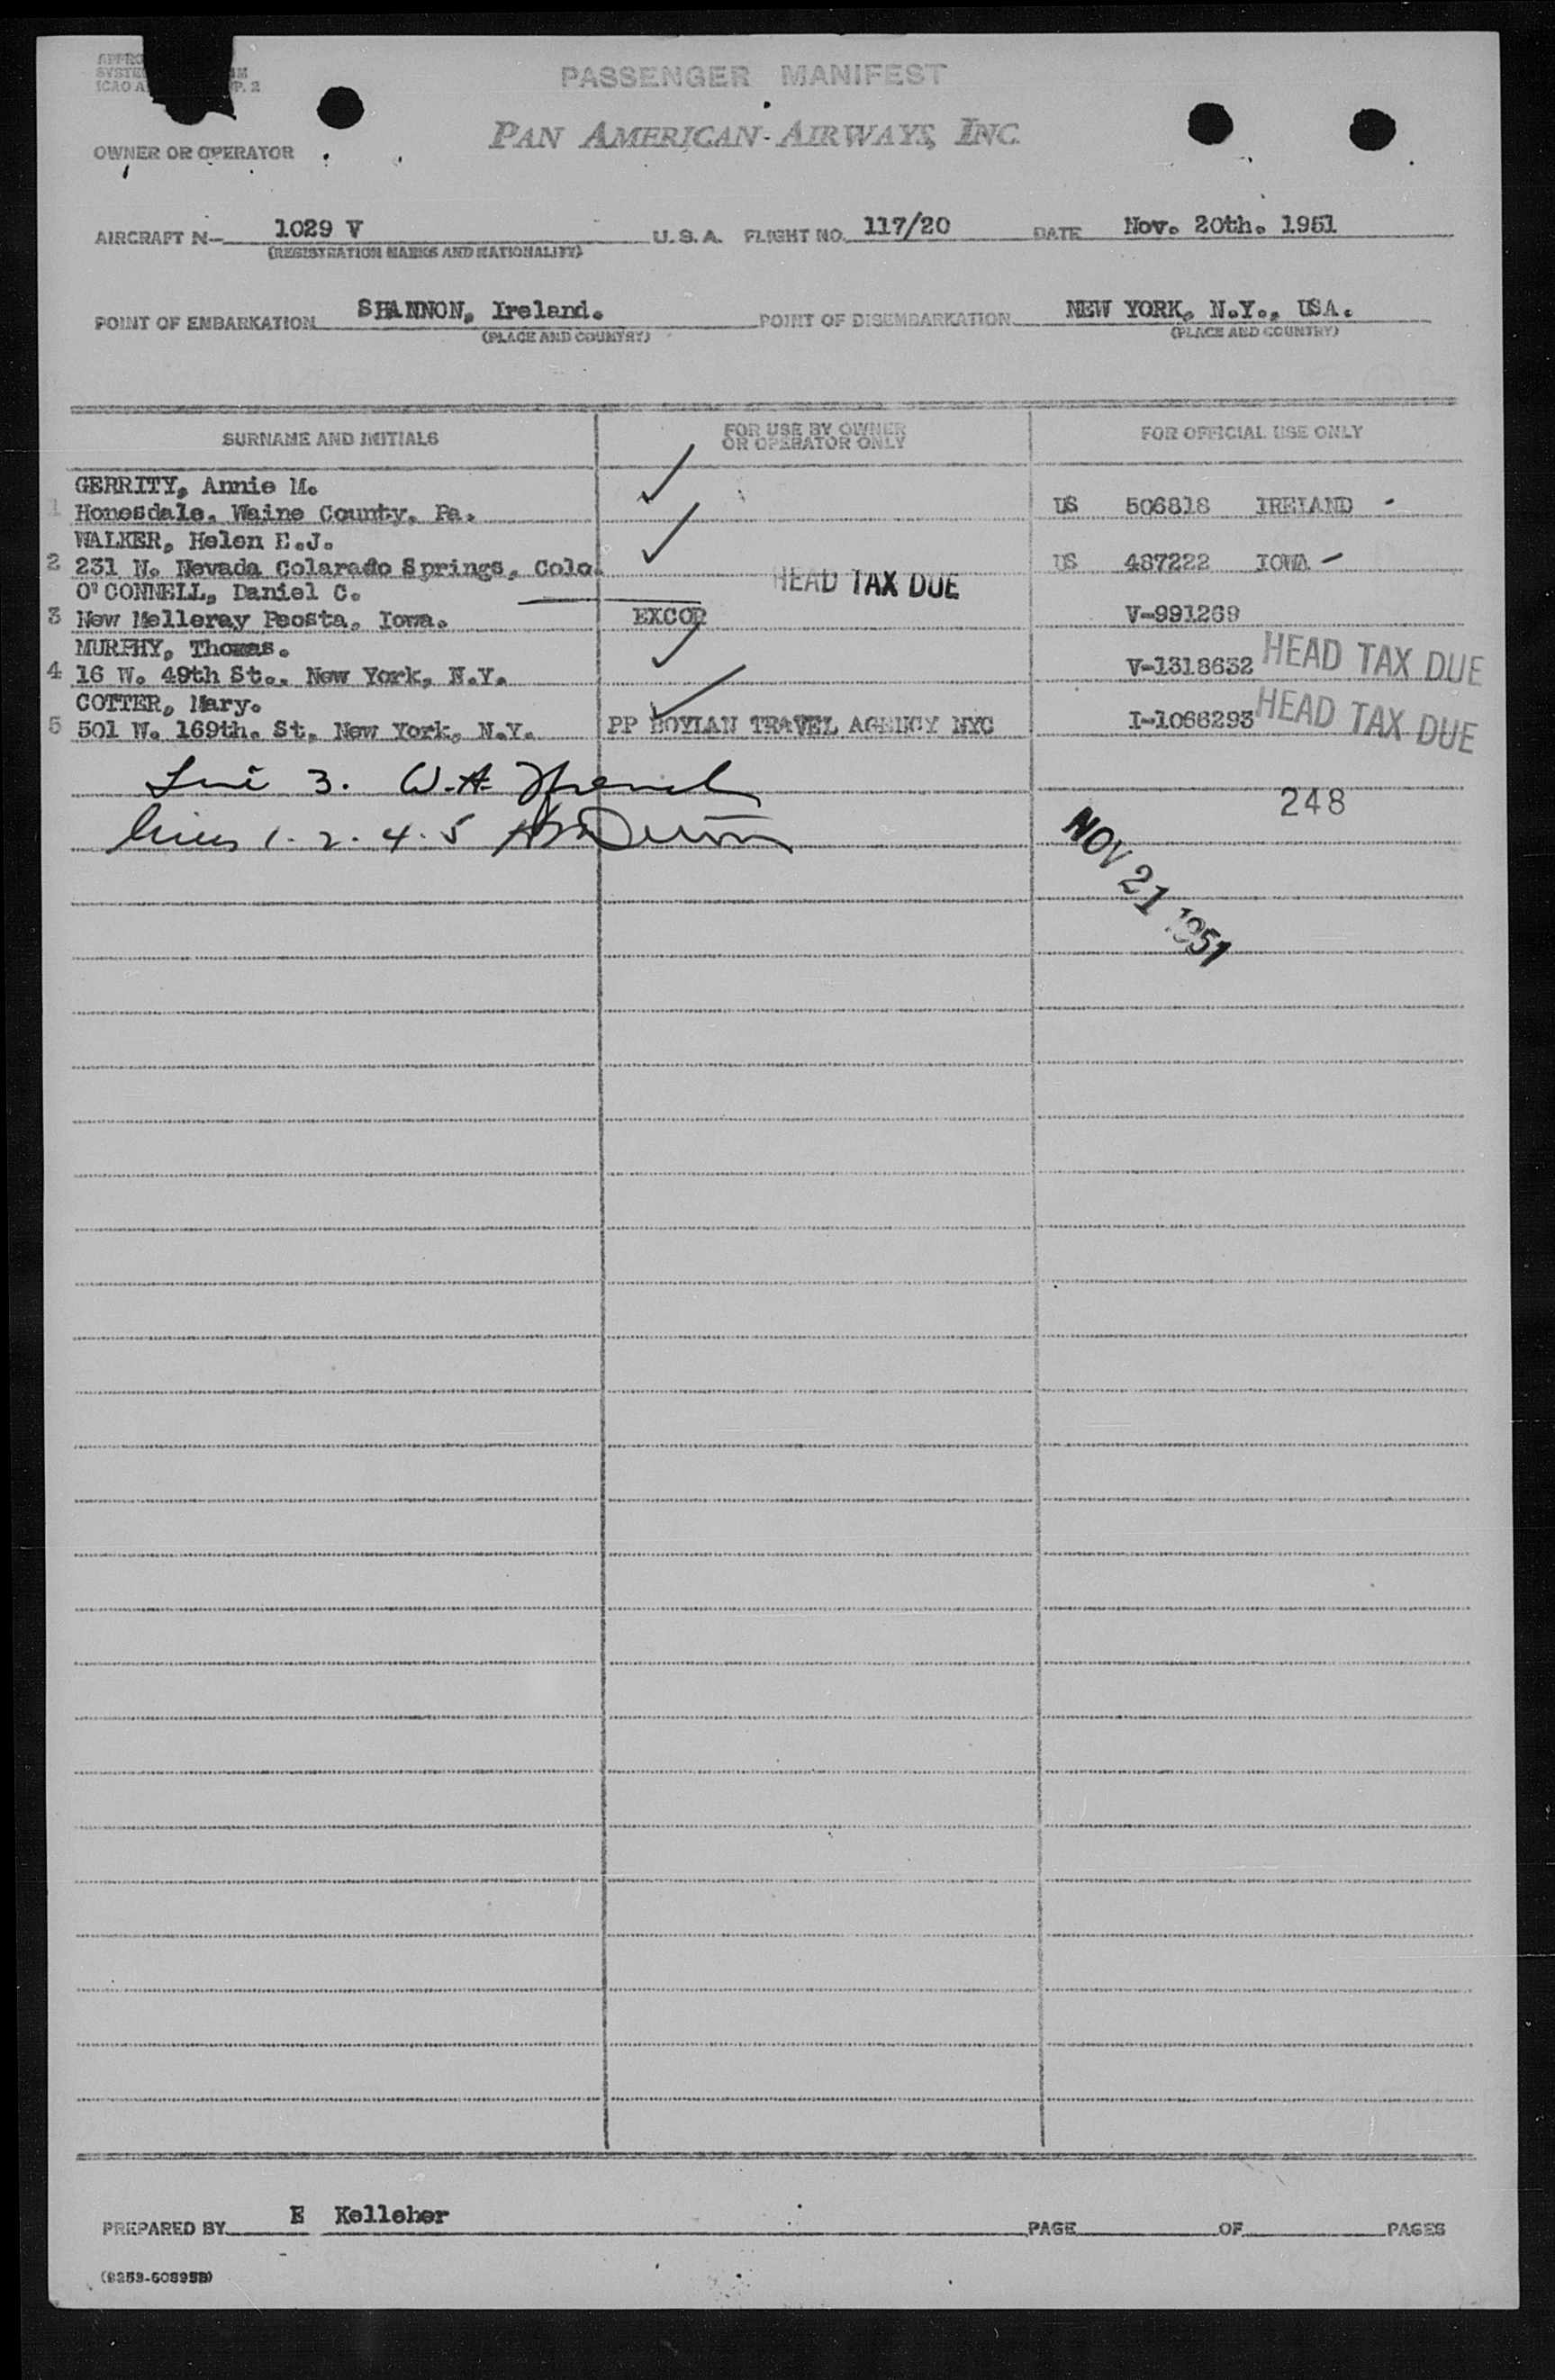 PASSENGER MANIFEST
PAN AMERICAN AIRWAYS, INC.
OWNER OR OPERATOR
AIRCRAFT N- 1029 V U.S.A. FLIGHT NO. 117/20 DATE Nov. 20th. 1951
(REGISTRATION MARKS AND NATIONALITY)
POINT OF EMBARKATION SHANNON, Ireland. POINT OF DISEMBARKATION NEW YORK, N.Y., USA.
(PLACE AND COUNTRY) (PLACE AND COUNTRY)
SURNAME AND INITIALS FOR USE BY OWNER OR OPERATOR ONLY FOR OFFICIAL USE ONLY
GERRITY, Annie M.
1 Honesdale, Waine County, Pa. US 506818 IRELAND -
WALKER, Helen E.J.
2 231 N. Nevada Colarado Springs, Colo. US 487222 IOWA -
HEAD TAX DUE
O'CONNELL, Daniel C.
3 New Melleray Peosta, Iowa. EXCOR V-991269
MURPHY, Thomas.
4 16 W. 49th St., New York, N.Y. V-1318632 HEAD TAX DUE
COTTER, Mary.
5 501 W. 169th. St, New York, N.Y. PP BOYLAN TRAVEL AGENCY NYC I-1066293 HEAD TAX DUE
3. W.A.
248
lines 1. 2. 4. 5
NOV 21 1951
PREPARED BY E Kelleher PAGE OF PAGES